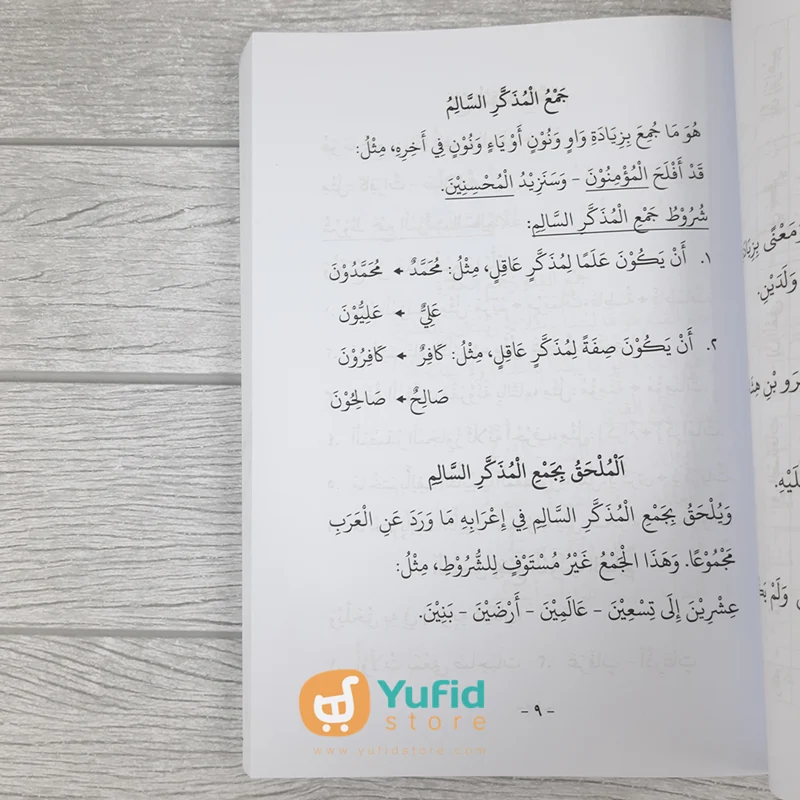 جَمْعُ الْمُذَكَّرِ السَّالِمُ
هُوَ مَا جُمِعَ بِزِيَادَةِ وَاوٍ وَنُوْنٍ أَوْ يَاءٍ وَنُوْنٍ فِي أَخِرِهِ، مِثْلُ:
قَدْ أَفْلَحَ الْمُؤْمِنُوْنَ – وَسَنَزِيْدُ الْمُحْسِنِيْنَ.
شُرُوْطُ جَمْعِ الْمُذَكَّرِ السَّالِمِ:
١. أَنْ يَكُوْنَ عَلَمًا لِمُذَكَّرٍ عَاقِلٍ، مِثْلُ: مُحَمَّدٌ ← مُحَمَّدُوْنَ
عَلِيٌّ ← عَلِيُّوْنَ
٢. أَنْ يَكُوْنَ صِفَةً لِمُذَكَّرٍ عَاقِلٍ، مِثْلُ: كَافِرٌ ← كَافِرُوْنَ
صَالِحٌ ← صَالِحُوْنَ
اَلْمُلْحَقُ بِجَمْعِ الْمُذَكَّرِ السَّالِمِ
وَيُلْحَقُ بِجَمْعِ الْمُذَكَّرِ السَّالِمِ فِي إِعْرَابِهِ مَا وَرَدَ عَنِ الْعَرَبِ
مَجْمُوْعًا. وَهَذَا الْجَمْعُ غَيْرُ مُسْتَوْفٍ لِلشُّرُوْطِ، مِثْلُ:
عِشْرِيْنَ إِلَى تِسْعِيْنَ – عَالَمِيْنَ – أَرْضَيْنَ – بَنِيْنَ.
- ٩ -
Yufid
store
www.yufidstore.com
وَلَدَيْنِ.